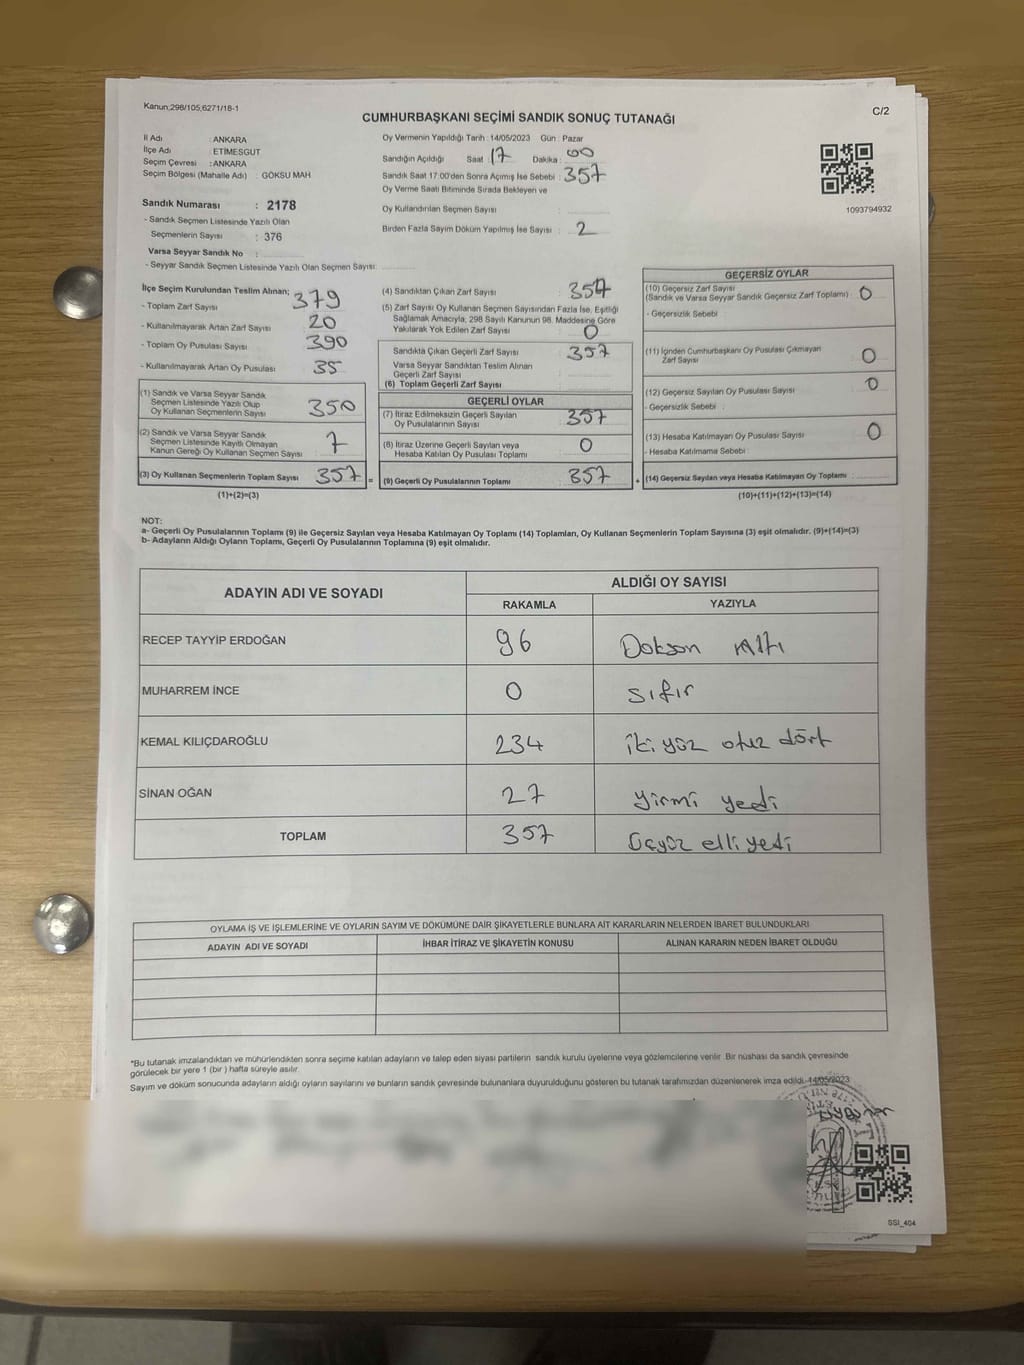 Kanun;298/105,6271/18-1
C/2
CUMHURBAŞKANI SEÇİMİ SANDIK SONUÇ TUTANAĞI
İl Adı : ANKARA
İlçe Adı : ETİMESGUT
Seçim Çevresi : ANKARA
Seçim Bölgesi (Mahalle Adı) : GÖKSU MAH
Sandık Numarası : 2178
- Sandık Seçmen Listesinde Yazılı Olan
Seçmenlerin Sayısı : 376
Varsa Seyyar Sandık No :
- Seyyar Sandık Seçmen Listesinde Yazılı Olan Seçmen Sayısı:
Oy Vermenin Yapıldığı Tarih : 14/05/2023 Gün : Pazar
Sandığın Açıldığı Saat : 17 Dakika : 00
Sandık Saat 17:00'den Sonra Açımış İse Sebebi : 357
Oy Verme Saati Bitiminde Sırada Bekleyen ve
Oy Kullandırılan Seçmen Sayısı :
Birden Fazla Sayım Döküm Yapılmış İse Sayısı : 2
1093794932
İlçe Seçim Kurulundan Teslim Alınan;
- Toplam Zarf Sayısı 379
- Kullanılmayarak Artan Zarf Sayısı 20
- Toplam Oy Pusulası Sayısı 390
- Kullanılmayarak Artan Oy Pusulası 35
(1) Sandık ve Varsa Seyyar Sandık
Seçmen Listesinde Yazılı Olup
Oy Kullanan Seçmenlerin Sayısı 350
(2) Sandık ve Varsa Seyyar Sandık
Seçmen Listesinde Kayıtlı Olmayan
Kanun Gereği Oy Kullanan Seçmen Sayısı 7
(3) Oy Kullanan Seçmenlerin Toplam Sayısı 357 =
(1)+(2)=(3)
(4) Sandıktan Çıkan Zarf Sayısı : 357
(5) Zarf Sayısı Oy Kullanan Seçmen Sayısından Fazla İse, Eşitliği
Sağlamak Amacıyla; 298 Sayılı Kanunun 98. Maddesine Göre
Yakılarak Yok Edilen Zarf Sayısı : 0
Sandıkta Çıkan Geçerli Zarf Sayısı : 357
Varsa Seyyar Sandıktan Teslim Alınan
Geçerli Zarf Sayısı :
(6) Toplam Geçerli Zarf Sayısı :
GEÇERLİ OYLAR
(7) İtiraz Edilmeksizin Geçerli Sayılan
Oy Pusulalarının Sayısı : 357
(8) İtiraz Üzerine Geçerli Sayılan veya
Hesaba Katılan Oy Pusulası Toplamı : 0
(9) Geçerli Oy Pusulalarının Toplamı : 357 +
GEÇERSİZ OYLAR
(10) Geçersiz Zarf Sayısı
(Sandık ve Varsa Seyyar Sandık Geçersiz Zarf Toplamı) : 0
- Geçersizlik Sebebi :
(11) İçinden Cumhurbaşkanı Oy Pusulası Çıkmayan
Zarf Sayısı : 0
(12) Geçersiz Sayılan Oy Pusulası Sayısı : 0
- Geçersizlik Sebebi :
(13) Hesaba Katılmayan Oy Pusulası Sayısı : 0
- Hesaba Katılmama Sebebi :
(14) Geçersiz Sayılan veya Hesaba Katılmayan Oy Toplamı :
(10)+(11)+(12)+(13)=(14)
NOT:
a- Geçerli Oy Pusulalarının Toplamı (9) ile Geçersiz Sayılan veya Hesaba Katılmayan Oy Toplamı (14) Toplamları, Oy Kullanan Seçmenlerin Toplam Sayısına (3) eşit olmalıdır. (9)+(14)=(3)
b- Adayların Aldığı Oyların Toplamı, Geçerli Oy Pusulalarının Toplamına (9) eşit olmalıdır.
ADAYIN ADI VE SOYADI ALDIĞI OY SAYISI
RAKAMLA YAZIYLA
RECEP TAYYİP ERDOĞAN 96 Doksan Altı
MUHARREM İNCE 0 sıfır
KEMAL KILIÇDAROĞLU 234 iki yüz otuz dört
SİNAN OĞAN 27 yirmi yedi
TOPLAM 357 üçyüz elli yedi
OYLAMA İŞ VE İŞLEMLERİNE VE OYLARIN SAYIM VE DÖKÜMÜNE DAİR ŞİKAYETLERLE BUNLARA AİT KARARLARIN NELERDEN İBARET BULUNDUKLARI
ADAYIN ADI VE SOYADI İHBAR İTİRAZ VE ŞİKAYETİN KONUSU ALINAN KARARIN NEDEN İBARET OLDUĞU
*Bu tutanak imzalandıktan ve mühürlendikten sonra seçime katılan adayların ve talep eden siyasi partilerin sandık kurulu üyelerine veya gözlemcilerine verilir. Bir nüshası da sandık çevresinde
görülecek bir yere 1 (bir ) hafta süreyle asılır.
Sayım ve döküm sonucunda adayların aldığı oyların sayılarını ve bunların sandık çevresinde bulunanlara duyurulduğunu gösteren bu tutanak tarafımızdan düzenlenerek imza edildi. 14/05/2023
SSI_404